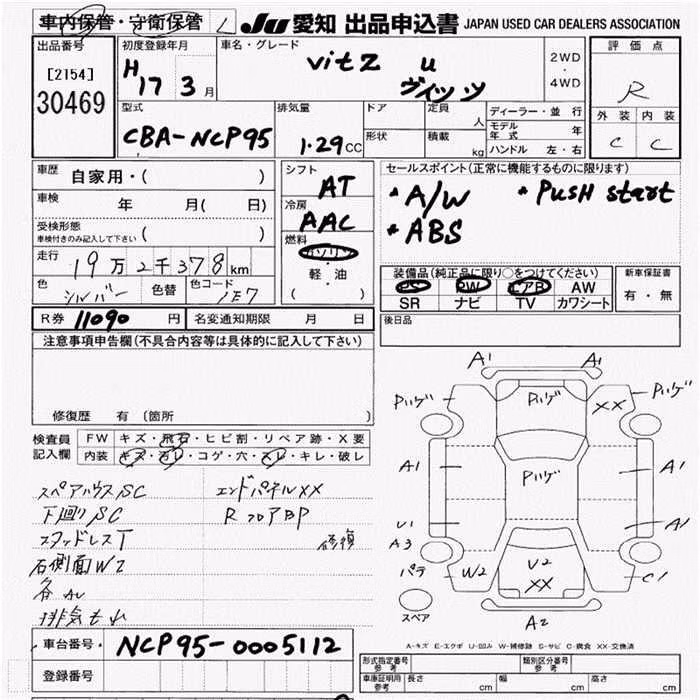 車内保管・守衛保管 JU 愛知 出品申込書 JAPAN USED CAR DEALERS ASSOCIATION
出品番号 初度登録年月 車名・グレード 評価点
[2154] H17 3月 vitz u 2WD・4WD R
30469 ヴィッツ
型式 排気量 ドア 定員 人 ディーラー・並行 外装 内装
CBA-NCP95 1.29cc 形状 積載 kg モデル年式 年 C C
ハンドル 左・右
車歴 自家用・( ) シフト AT セールスポイント(正常に機能するものに限ります)
車検 年 月( 日) 冷房 AAC *A/W *PusH start
受検形態 ( ) *ABS
車検付きのみ記入して下さい 燃料 ガソリン
走行 19万2千378km 軽・油 装備品(純正品に限り○をつけてください) 新車保証書
色 シルバー 色替 色コード 1E7 ( ) PS PW エアB AW 有・無
SR ナビ TV カワシート
R券 11090円 名変通知期限 月 日 後日品
注意事項申告欄(不具合内容等は具体的に記入して下さい)
修復歴 有 (箇所
検査員 FW キズ・飛石・ヒビ割・リペア跡・X要
記入欄 内装 キズ・汚レ・コゲ・穴・スレ・キレ・破レ
スペアハウスSC エンドパネルXX
下廻りSC RフロアBP
スタッドレスT 修復
右側面W2
排気もれ
A1 A1
Pハゲ Pハゲ XX Pハゲ
A1 Pハゲ A1
U1 A1
A3
W2 U2 XX C1
スペア A2
A-キズ E-エクボ U-凹み W-補修跡 S-サビ C-腐食 XX-交換済
車台番号 NCP95-0005112
登録番号
形式指定番号 参考 類別区分番号 参考
車庫証明用 参考 長さ cm 幅 cm 高さ cm